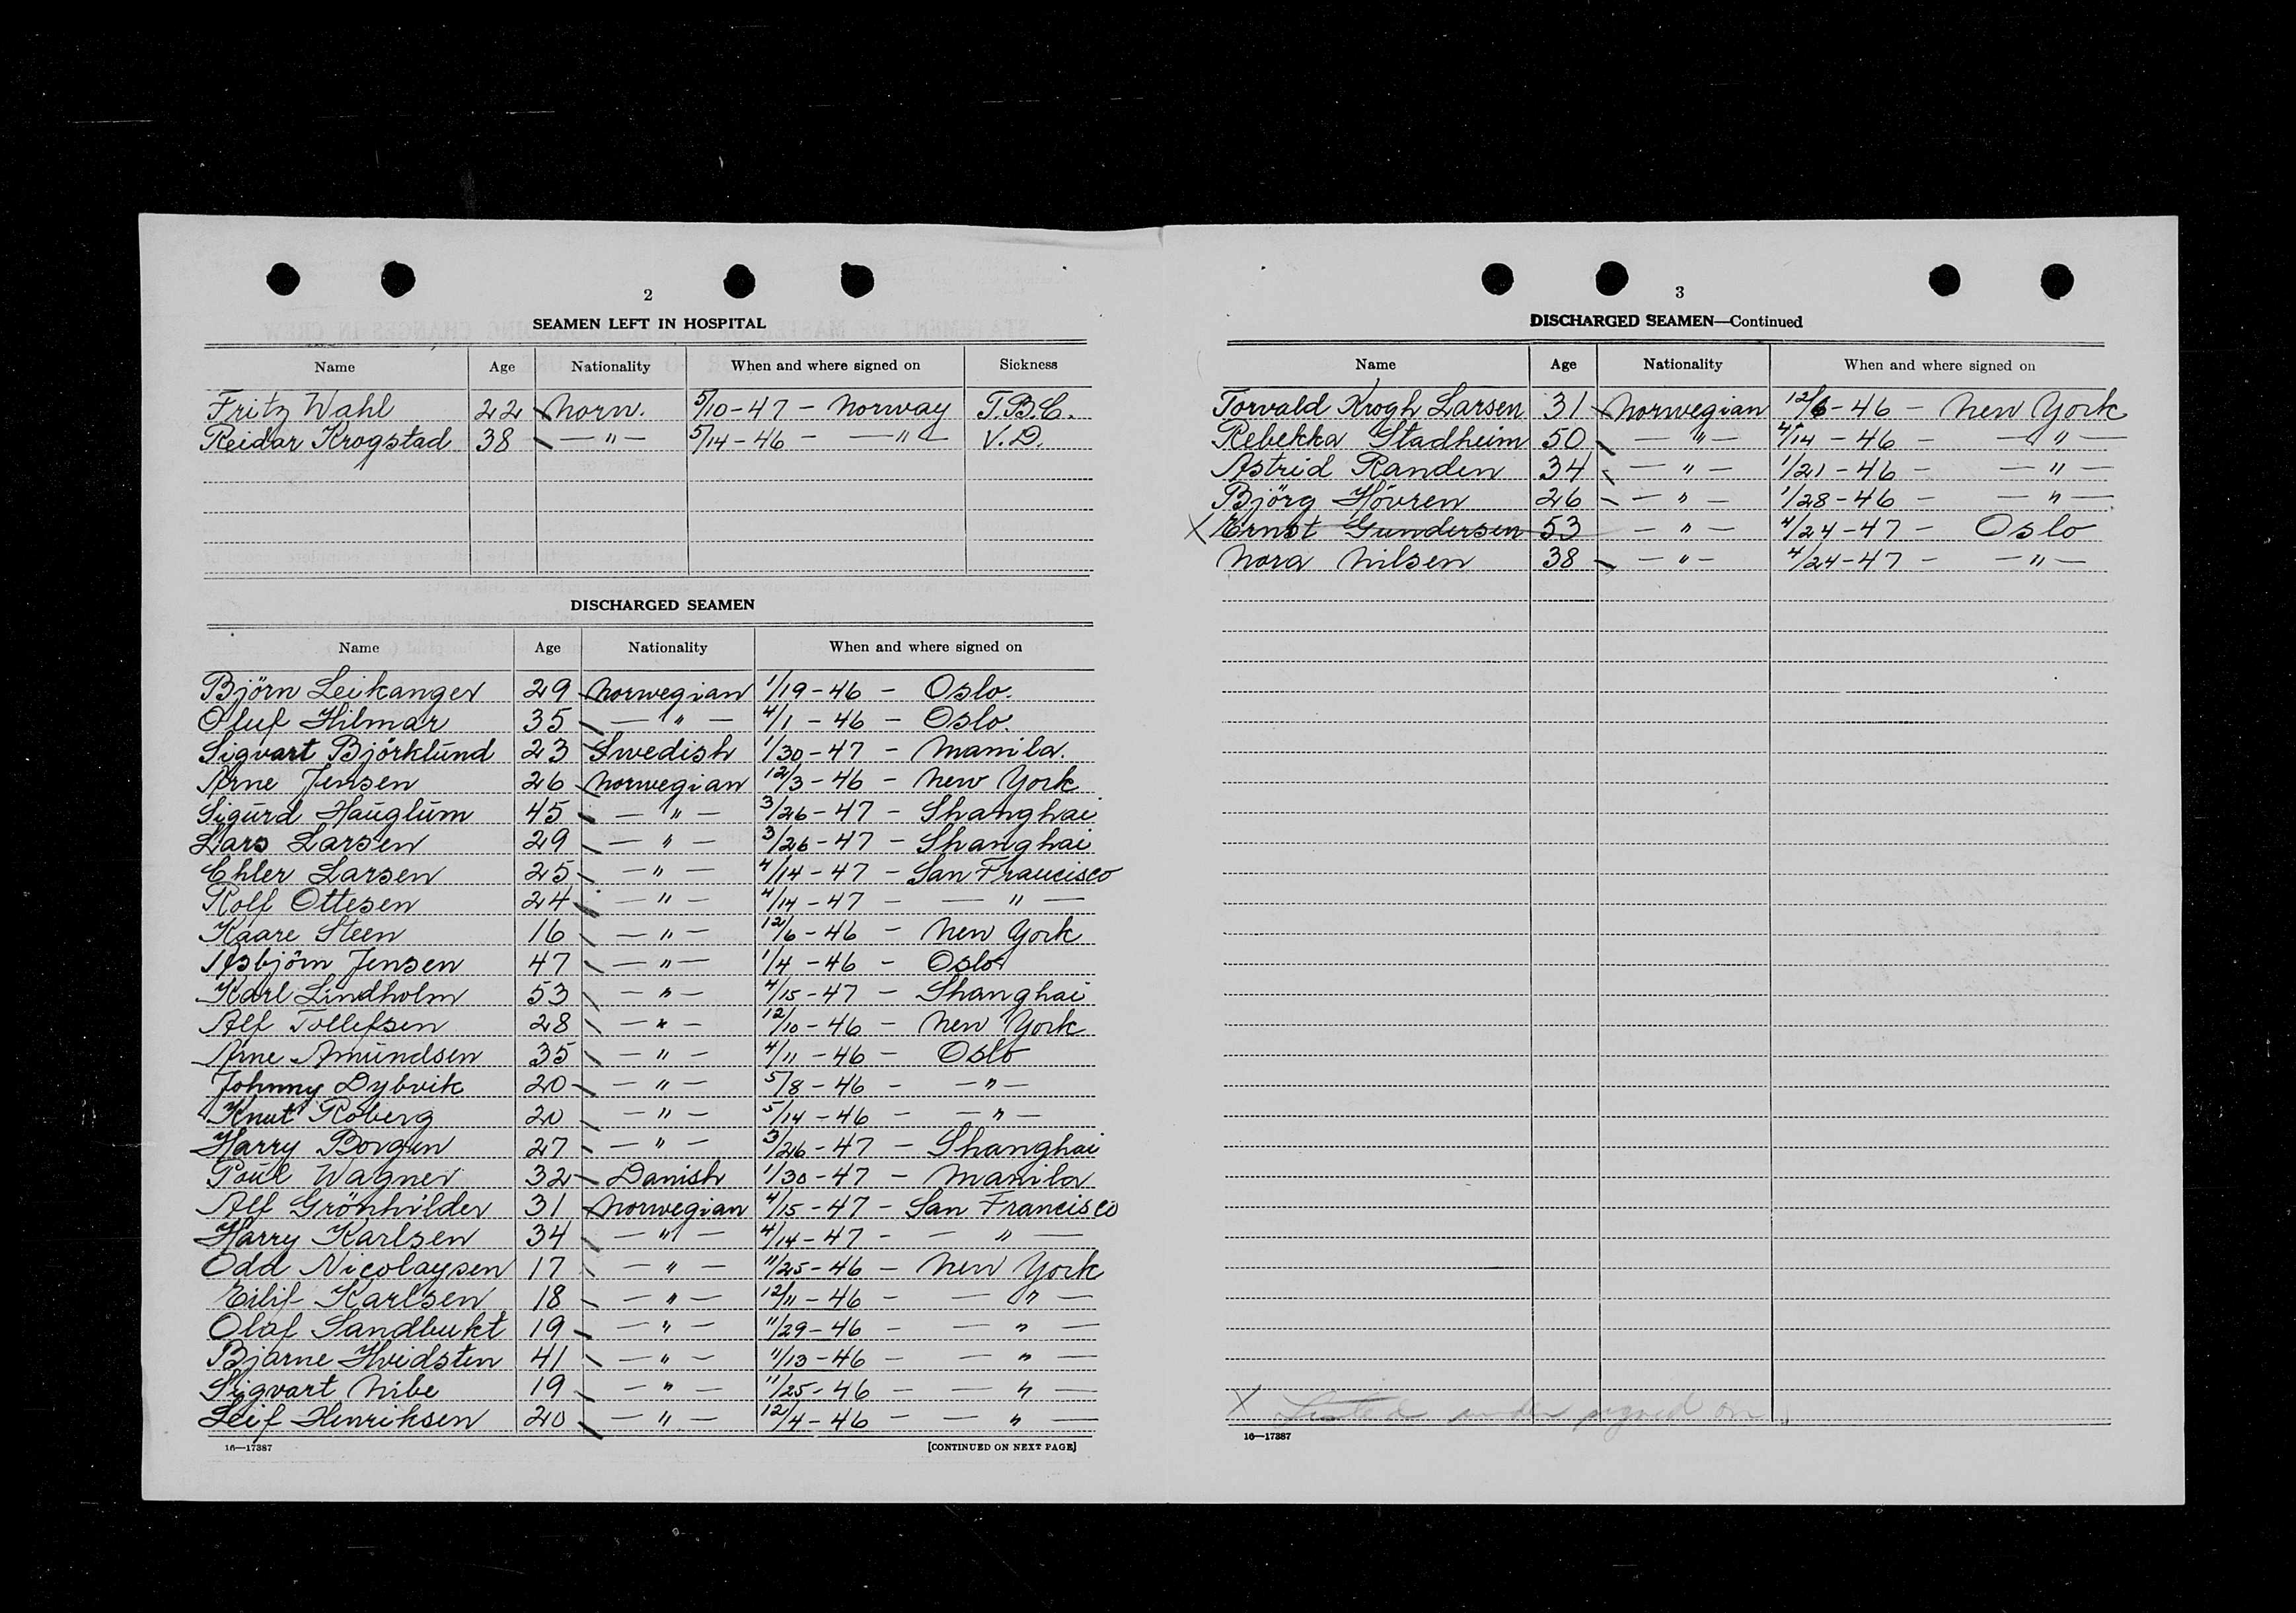 2
SEAMEN LEFT IN HOSPITAL
Name Age Nationality When and where signed on Sickness
Fritz Wahl 22 Norw. 5/10-47 - Norway T.B.C.
Reidar Krogstad 38 — " — 5/14-46 - — " — V.D.
DISCHARGED SEAMEN
Name Age Nationality When and where signed on
Björn Leikanger 29 Norwegian 1/19-46 - Oslo.
Oluf Hilmar 35 — " — 4/1-46 - Oslo.
Sigvart Björklund 23 Swedish 1/30-47 - Manila.
Arne Jensen 26 Norwegian 12/3-46 - New York
Sigurd Hauglum 45 — " — 3/26-47 - Shanghai
Lars Larsen 29 — " — 3/26-47 - Shanghai
Ehler Larsen 25 — " — 4/14-47 - San Francisco
Rolf Ottesen 24 — " — 4/14-47 - — " —
Kaare Steen 16 — " — 12/6-46 - New York
Asbjörn Jensen 47 — " — 1/4-46 - Oslo
Karl Lindholm 53 — " — 4/15-47 - Shanghai
Alf Tollefsen 28 — " — 12/10-46 - New York
Arne Amundsen 35 — " — 4/11-46 - Oslo
Johnny Dybvik 20 — " — 5/8-46 - — " —
Knut Roberg 20 — " — 5/14-46 - — " —
Harry Borgen 27 — " — 3/26-47 - Shanghai
Poul Wagner 32 Danish 1/30-47 - Manila
Alf Grönhilder 31 Norwegian 4/15-47 - San Francisco
Harry Karlsen 34 — " — 4/14-47 - — " —
Odd Nicolaysen 17 — " — 11/25-46 - New York
Eilif Karlsen 18 — " — 12/11-46 - — " —
Olaf Sandbukt 19 — " — 11/29-46 - — " —
Bjarne Hvidsten 41 — " — 11/13-46 - — " —
Sigvart Nibe 19 — " — 11/25-46 - — " —
Leif Henriksen 20 — " — 12/4-46 - — " —
16—17387 [CONTINUED ON NEXT PAGE]
3
DISCHARGED SEAMEN—Continued
Name Age Nationality When and where signed on
Torvald Krogh Larsen 31 Norwegian 12/6-46 - New York
Rebekka Stadheim 50 — " — 4/14-46 - — " —
Astrid Randen 34 — " — 1/21-46 - — " —
Björg Hövren 26 — " — 1/28-46 - — " —
X Ernst Gundersen 53 — " — 4/24-47 - Oslo
Nora Nilsen 38 — " — 4/24-47 - — " —
X Listed under signed on
16—17387